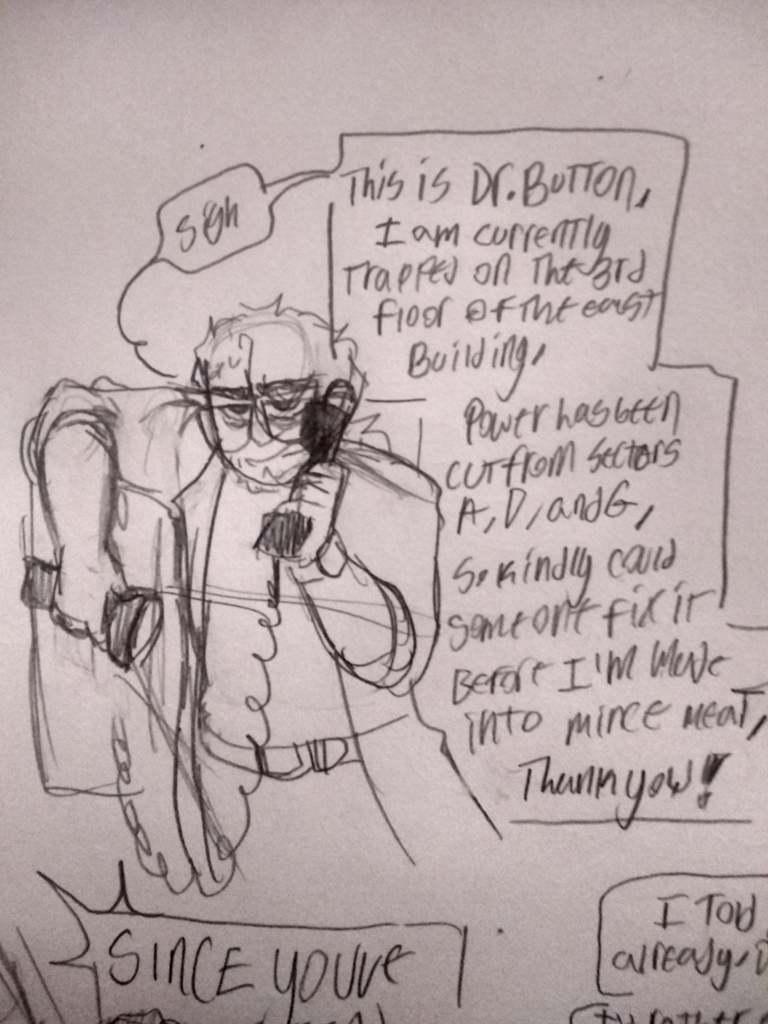 sigh
This is Dr. Button,
I am currently
trapped on the 3rd
floor of the east
Building,
Power has been
cut from sectors
A, D, and G,
So kindly could
someone fix it
Before I'm Made
into mince meat,
Thank you!
SINCE YOU'VE
I Told
already,